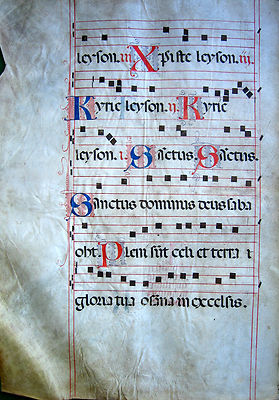 leyson. iii Xpiste leyson. iii.
Kyrie leyson. ii. Kyrie
leyson. i. Sactus Sactus.
Sanctus dominus deus saba
oht. Pleni sūt celi et terra i
gloria tua osāna in excelsis.